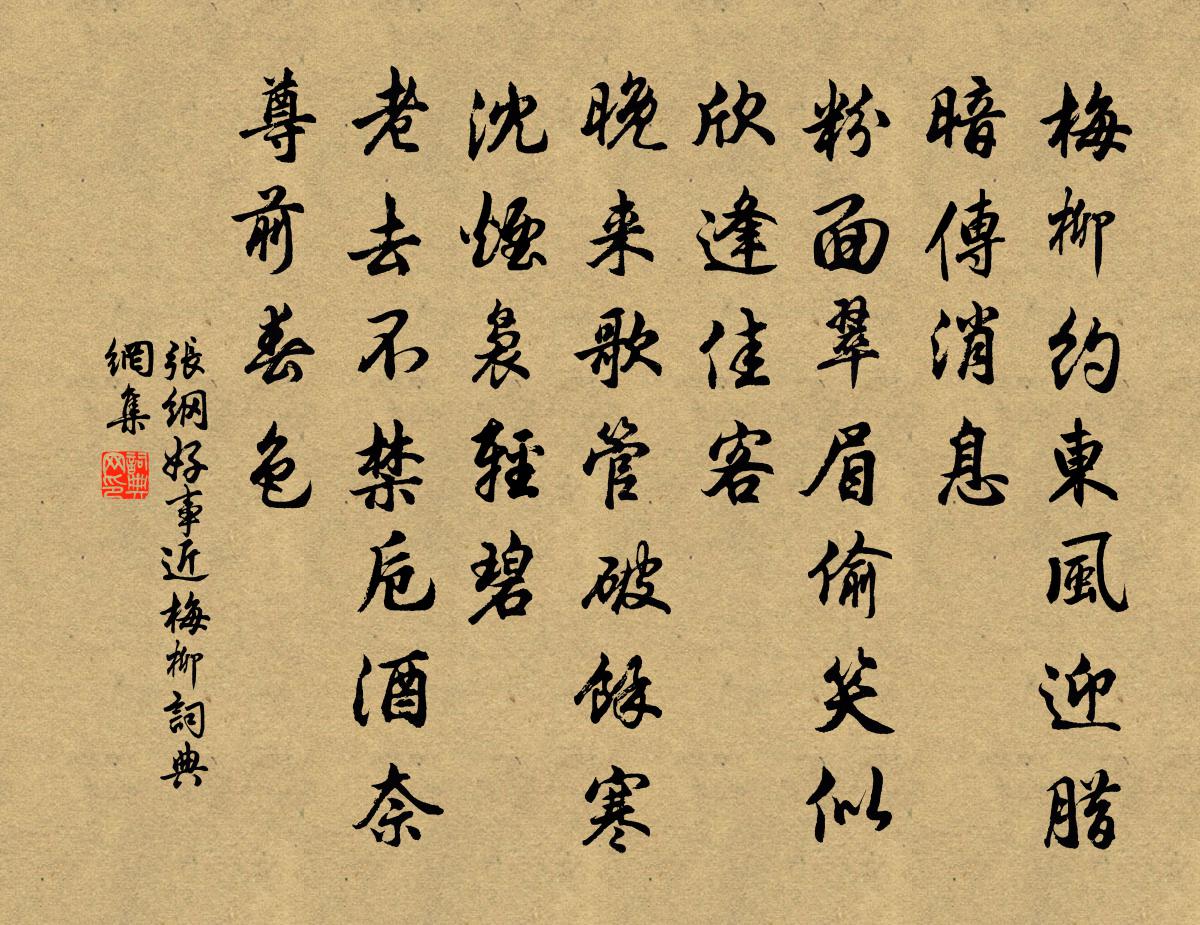 梅柳約東風迎腊
暗傳消息
粉面翠眉偷笑似
欣逢佳客
晚来歌管破餘寒
沈煙裊輕碧
老去不禁卮酒奈
尊前春色
張綱好事近梅柳詞典
網集
詞典网印